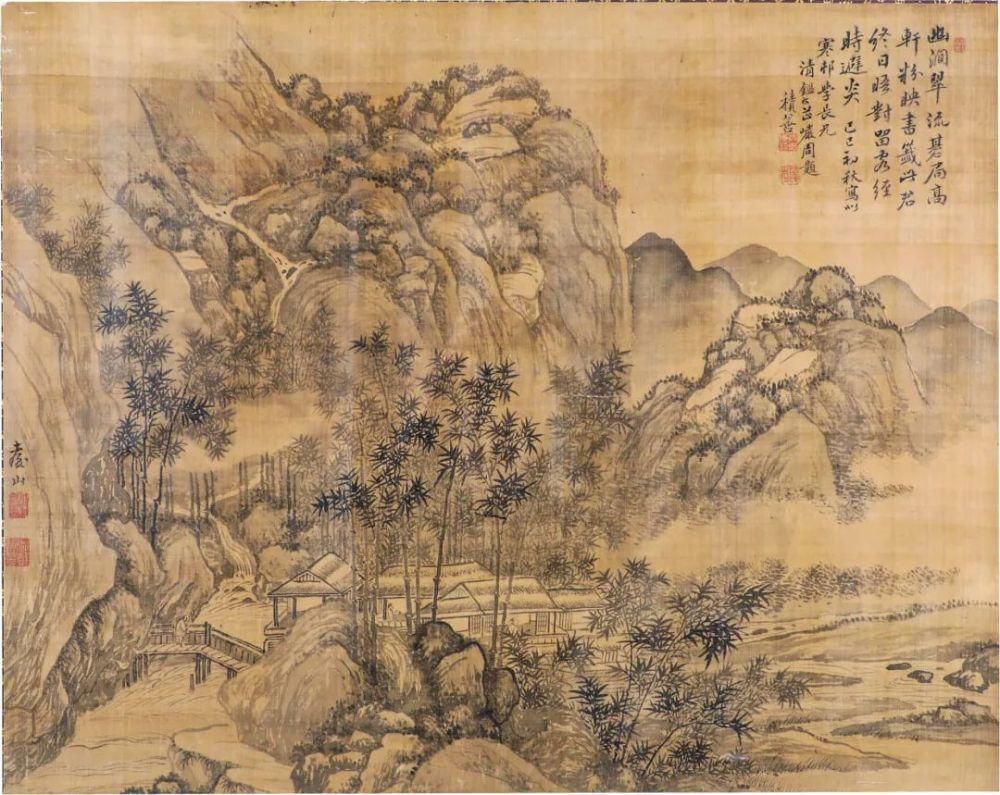 幽澗翠流碁局高
軒粉映書籤此君
終日晤對留客經
時避炎 己巳初秋寫似
寒邨学長兄
清鑑 苔巖周題
積善
山